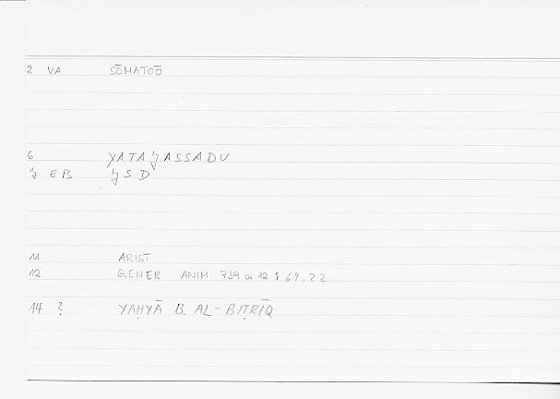 2 VA SŌMATOŌ
6 YATAǦASSADU
EB ǦSD
11 ARIST
12 GENER ANIM 739 a 12 ; 69.22
14 ? YAḤYĀ B. AL-BIṬRĪQ